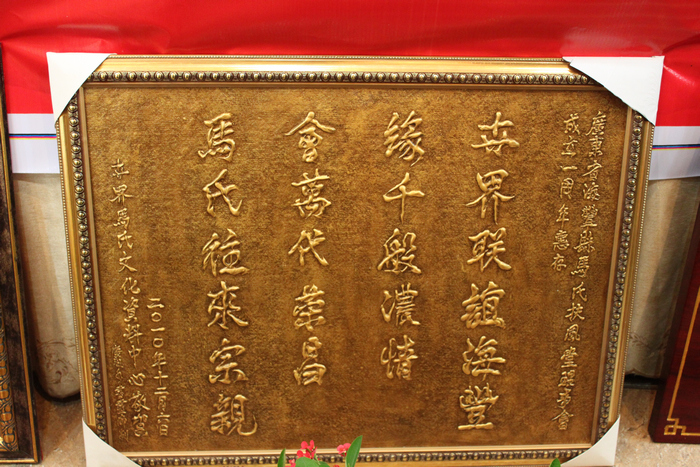 廣東省海豐縣馬氏扶風堂理事會
成立一周年惠存
世界联誼海豐
緣千般濃情
會萬代榮昌
馬氏往來宗親
世界馬氏文化資料中心敬賀
二〇一〇年十二月六日